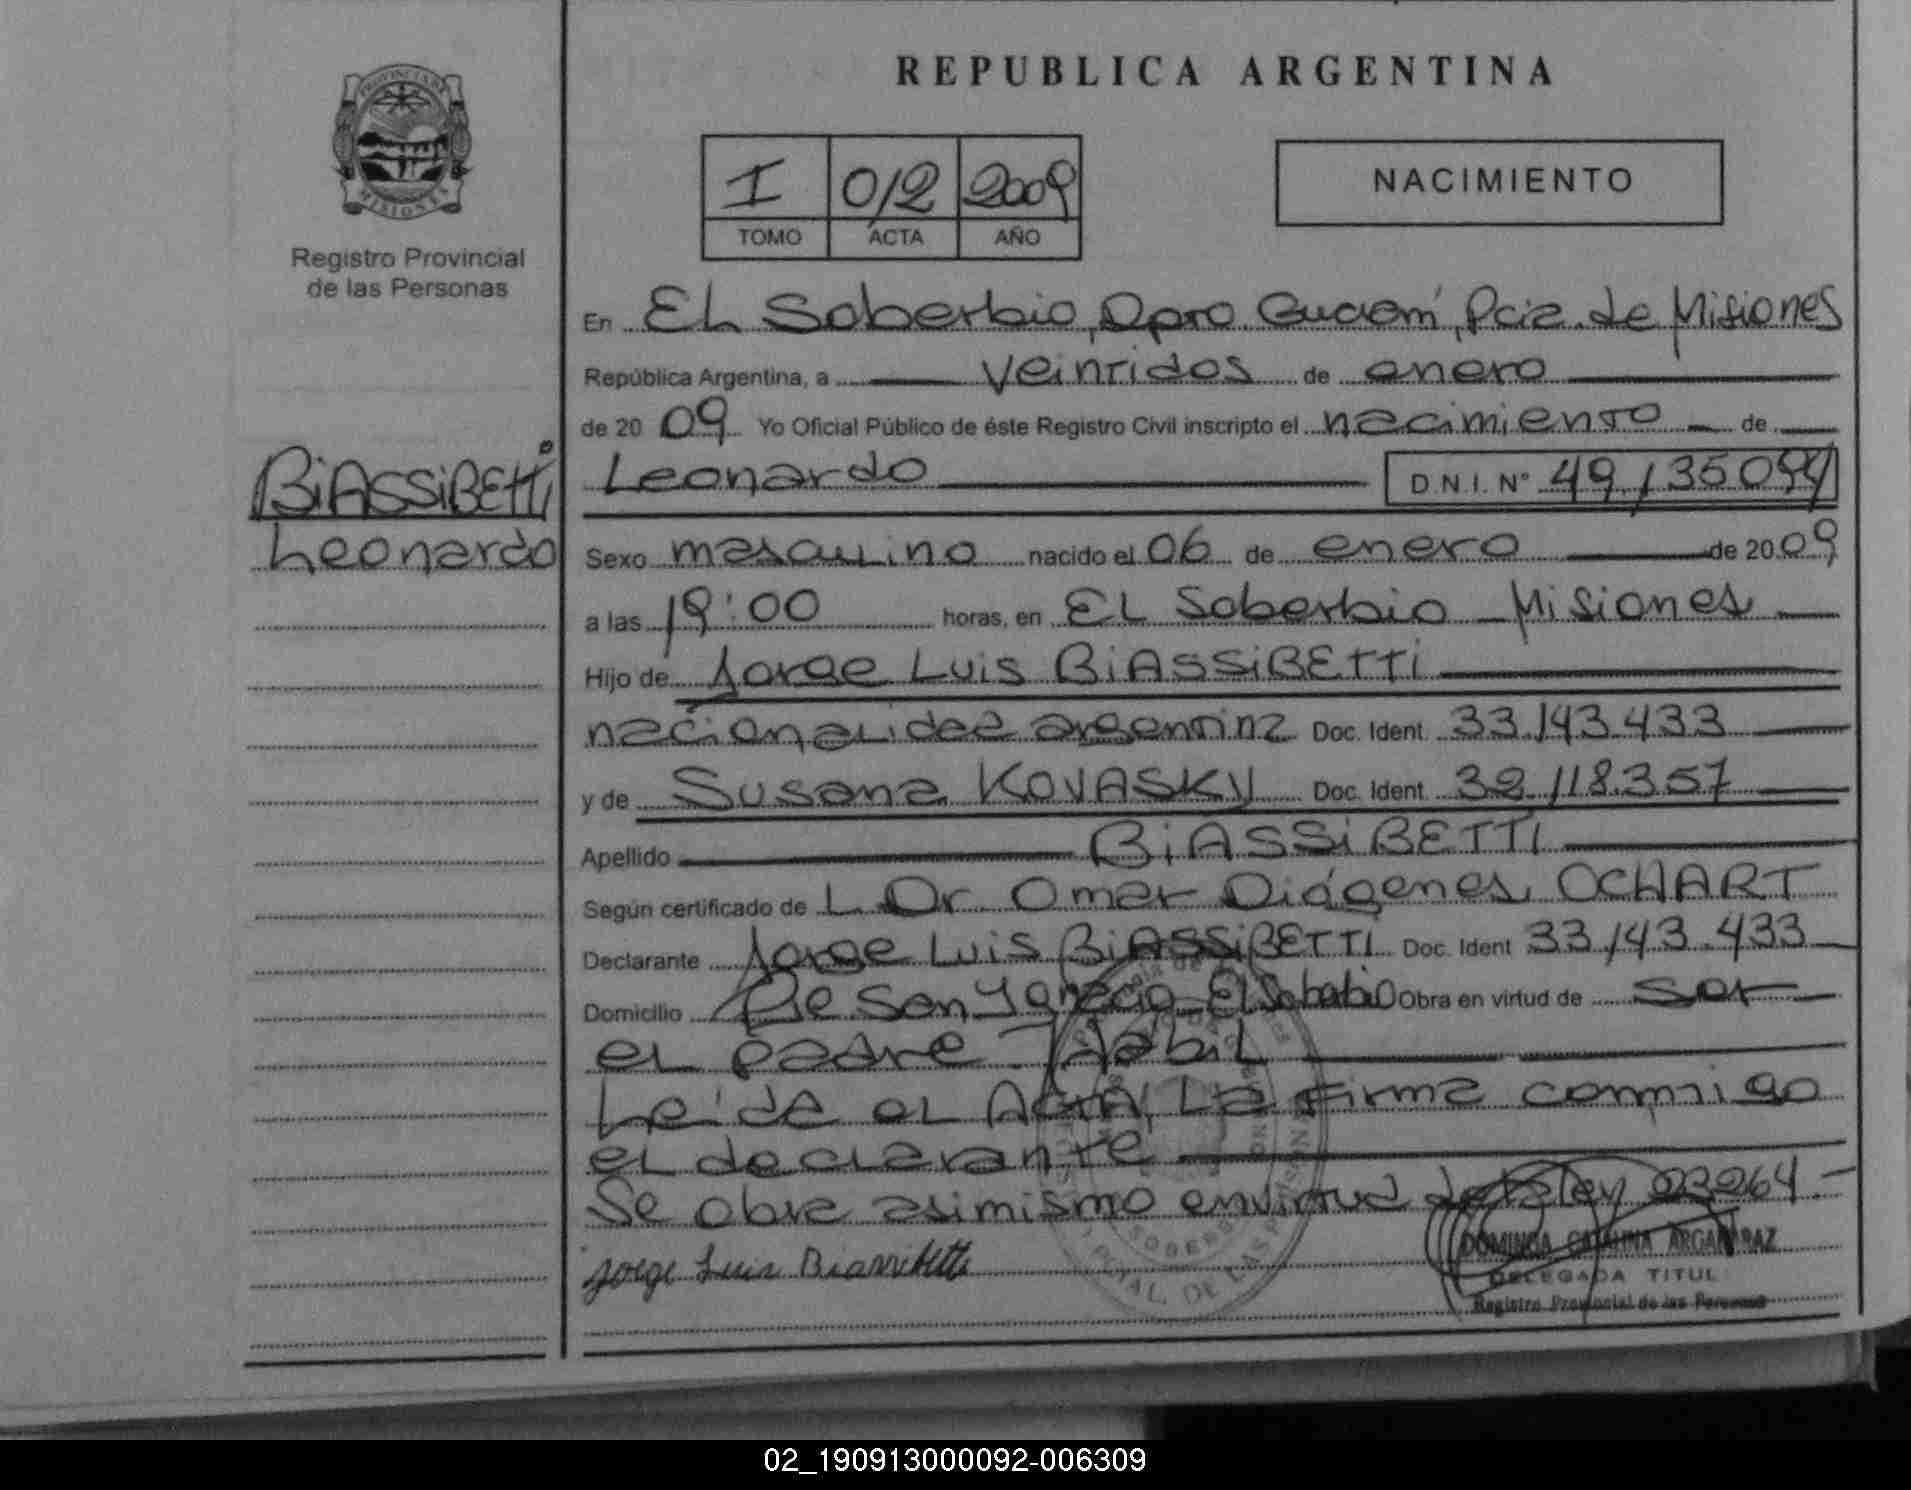 PROVINCIA DE
MISIONES
Registro Provincial
de las Personas
BiASSiBETTi
Leonardo
REPUBLICA ARGENTINA
I 012 2009
TOMO ACTA AÑO
NACIMIENTO
En EL Soberbio, Dpto Guaraní, Pcia. de Misiones
República Argentina, a veintidos de enero
de 20 09 Yo Oficial Público de éste Registro Civil inscripto el nacimiento de
Leonardo D.N.I. Nº
Sexo masculino nacido el 06 de enero de 20 09
a las 19:00 horas, en EL Soberbio Misiones
Hijo de Jorge Luis BiASSiBETTi
nacionalidad argentina Doc. Ident. 33.143.433
y de Susana KOVASKY Doc. Ident. 32.118.357
Apellido BiASSiBETTI
Según certificado de L. Dr. Omar Diógenes OCHART
Declarante Jorge Luis BiASSiBETTI Doc. Ident 33.143.433
Domicilio Pje San Ygnacio El Soberbio Obra en virtud de ser
el padre Habil
Leida el Acta, La Firma conmigo
el declarante
Se obra asimismo en virtud de la ley 23264.-
Jorge Luis Biassibetti
CATALINA
DELEGADA TITUL
Registro Provincial de las Personas
02_190913000092-006309